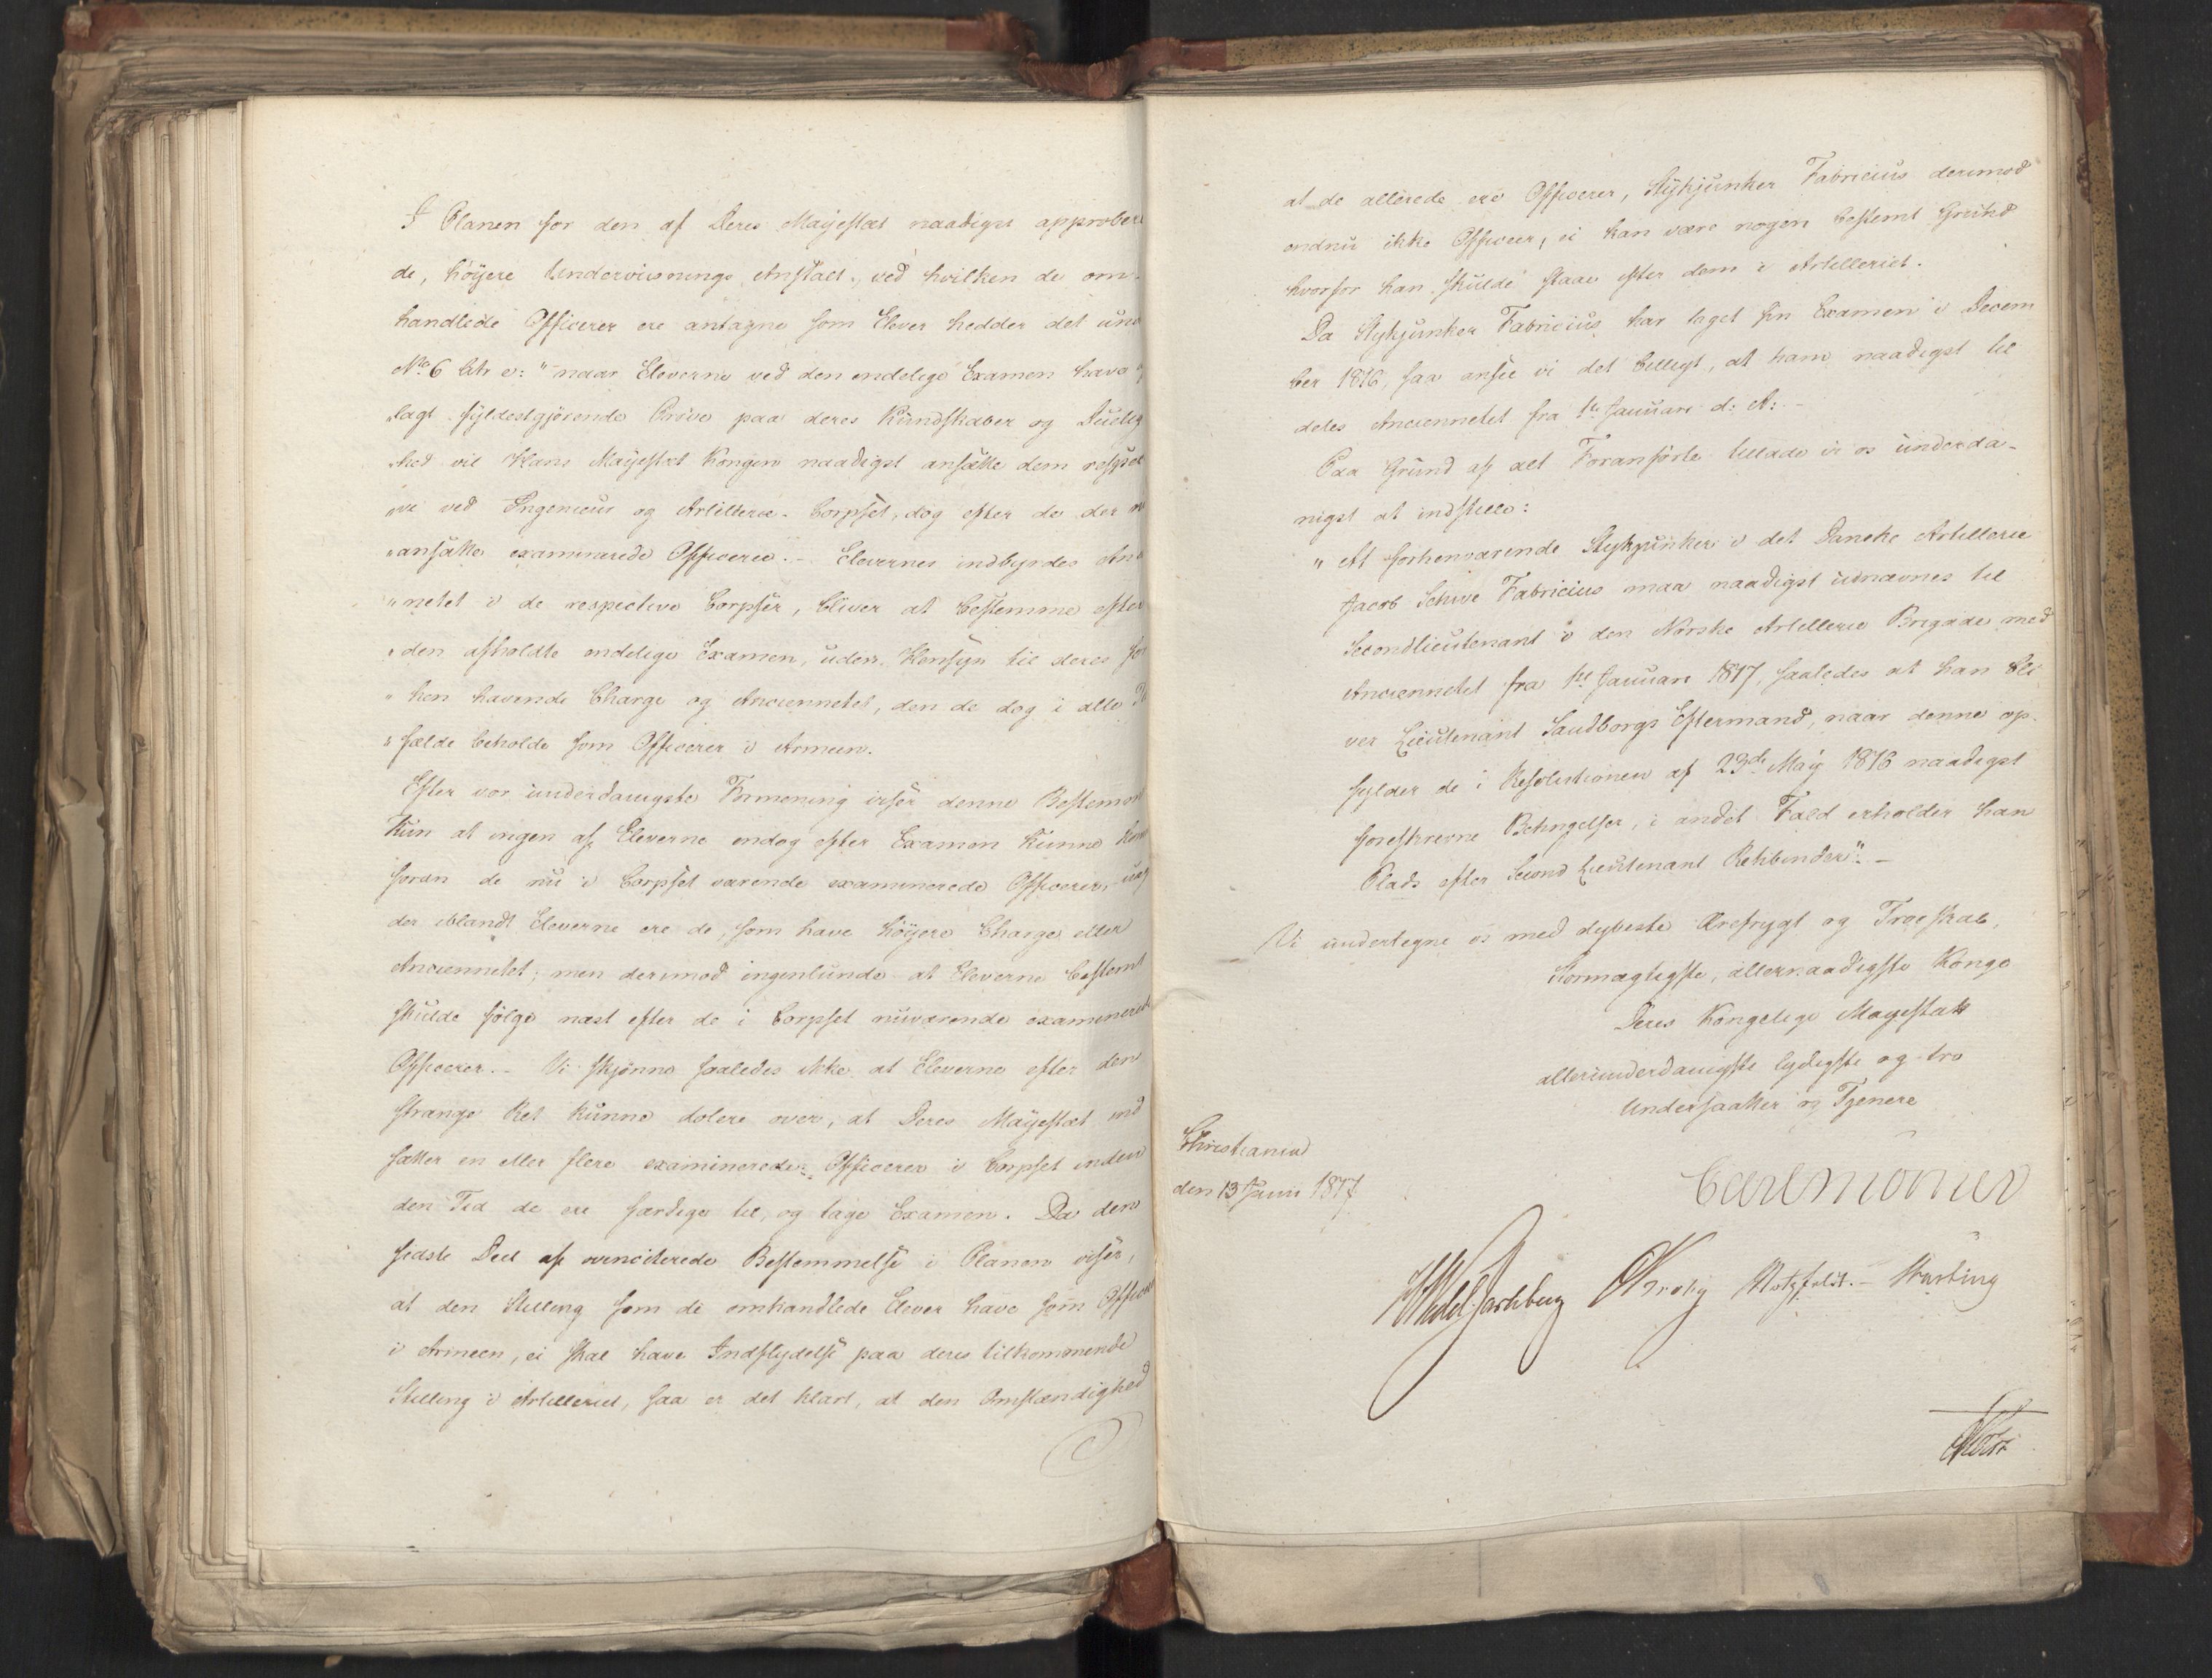 I Planen for den af Deres Mayestæt naadigst approbere
de, höyere Underviisnings Anstalt, ved hvilken de om-
handlede Officerer ere antagne som Elever hedder det und
No 6 Litr e: "naar Eleverne ved den endelige Examen have
"lagt fyldestgjørende Pröve paa deres Kundskaber og Duelig
"hed vil Hans Mayestæt Kongen naadigst ansætte dem respect
"ive ved Ingenieur og Artillerie-Corpset, dog efter de der
"ansatte examinerede Officerer. - Elevernes indbyrdes An
"netet i de respective Corpser, bliver at bestemme efter
"den afholdte endelige Examen, uden Hensyn til deres for
"hen havende Charge og Anciennetet, den de dog i alle
"fælde beholde som Officerer i Armeen.
Efter vor underdanigste Formening viser denne Bestemm
kun at ingen af Eleverne endog efter Examen kunne kom
foran de nu i Corpset værende examinerede Officerer,
der iblandt Eleverne ere de, som have höyere Charge eller
Anciennetet; men derimod ingenlunde at Eleverne bestemt
skulde fölge næst efter de i Corpset nuværende examinered
Officerer. - Vi skjönne saaledes ikke at Eleverne efter den
strænge Ret kunne dolere over, at Deres Mayestæt ind
sætter en eller flere examinerede Officerer i Corpset inden
den Tid de ere færdige til, og tage Examen. Da den
sidste Deel af ovenciterede Bestemmelse i Planen viser,
at den Stilling som de omhandlede Elever have som Officer
i Armeen, ei skal have Indflydelse paa deres tilkommende
Stilling i Artilleriet, saa er det klart, at den Omstændighed
at de allerede ere Officerer, Stykjunker Fabricius derimod
endnu ikke Officeer, ei kan være nogen bestemt Grund
hvorfor han skulde staae efter dem i Artilleriet.
Da Stykjunker Fabricius har taget sin Examen i Decem
ber 1816, saa ansee vi det billigt, at ham naadigst til
deles Anciennetet fra 1ste Januari d: A: -
Paa Grund af det Foranförte tillade vi os underda-
nigst at indstille:
"At forhenværende Stykjunker i det Danske Artillerie
Jacob Schive Fabricius maa naadigst udnævnes til
Secondlieutenant i den Norske Artillerie Brigade med
Anciennetet fra 1ste Januari 1817, saaledes at han bli
ver Lieutenant Sandborgs Eftermand, naar denne op-
fylder de i Resolutionen af 23de May 1816 naadigst
foreskrevne Betingelser, i andet Fald erholder han
Plads efter Second Lieutenant Rehbinder". -
Vi undertegne os med dybeste Ærefrygt og Troeskab,
Stormægtigste, allernaadigste Konge
Deres Kongelige Mayestæts
allerunderdanigste lydigste og tro
Undersaatter og Tjenere
Christiania
den 13 Juni 1817
Carl Mörner
HWedel Jarlsberg Krohg Motzfeldt. -